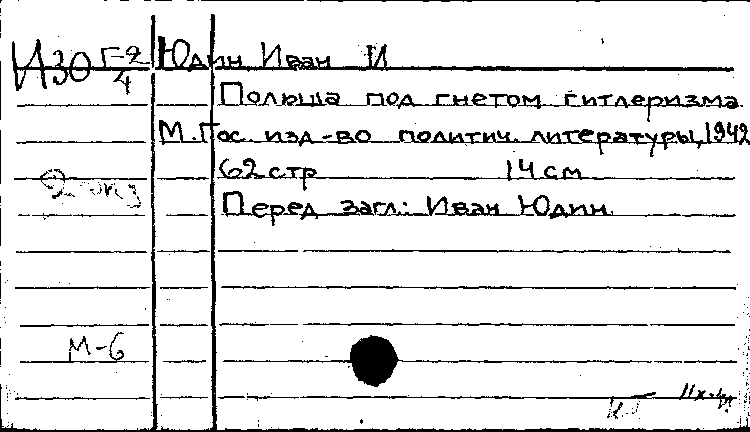 ИЗО Г-2/4
Юдин, Иван И
Польша под гнетом гитлеризма.
М. Гос. изд-во политич. литературы, 1942
62 стр 14 см
Перед загл.: Иван Юдин.
2
М-6